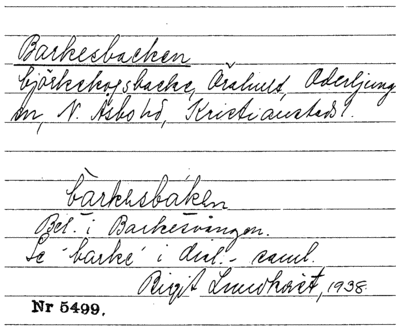 Barkesbacken
björkskogsbacke, Örahult, Oderljunga
sn, N. Åsbo hd, Kristianstads l.
barkesbaken
Bel. i Barkesvången.
Se 'barke' i dial.-saml.
Birgit Lundkvist, 1938.
Nr 5499.